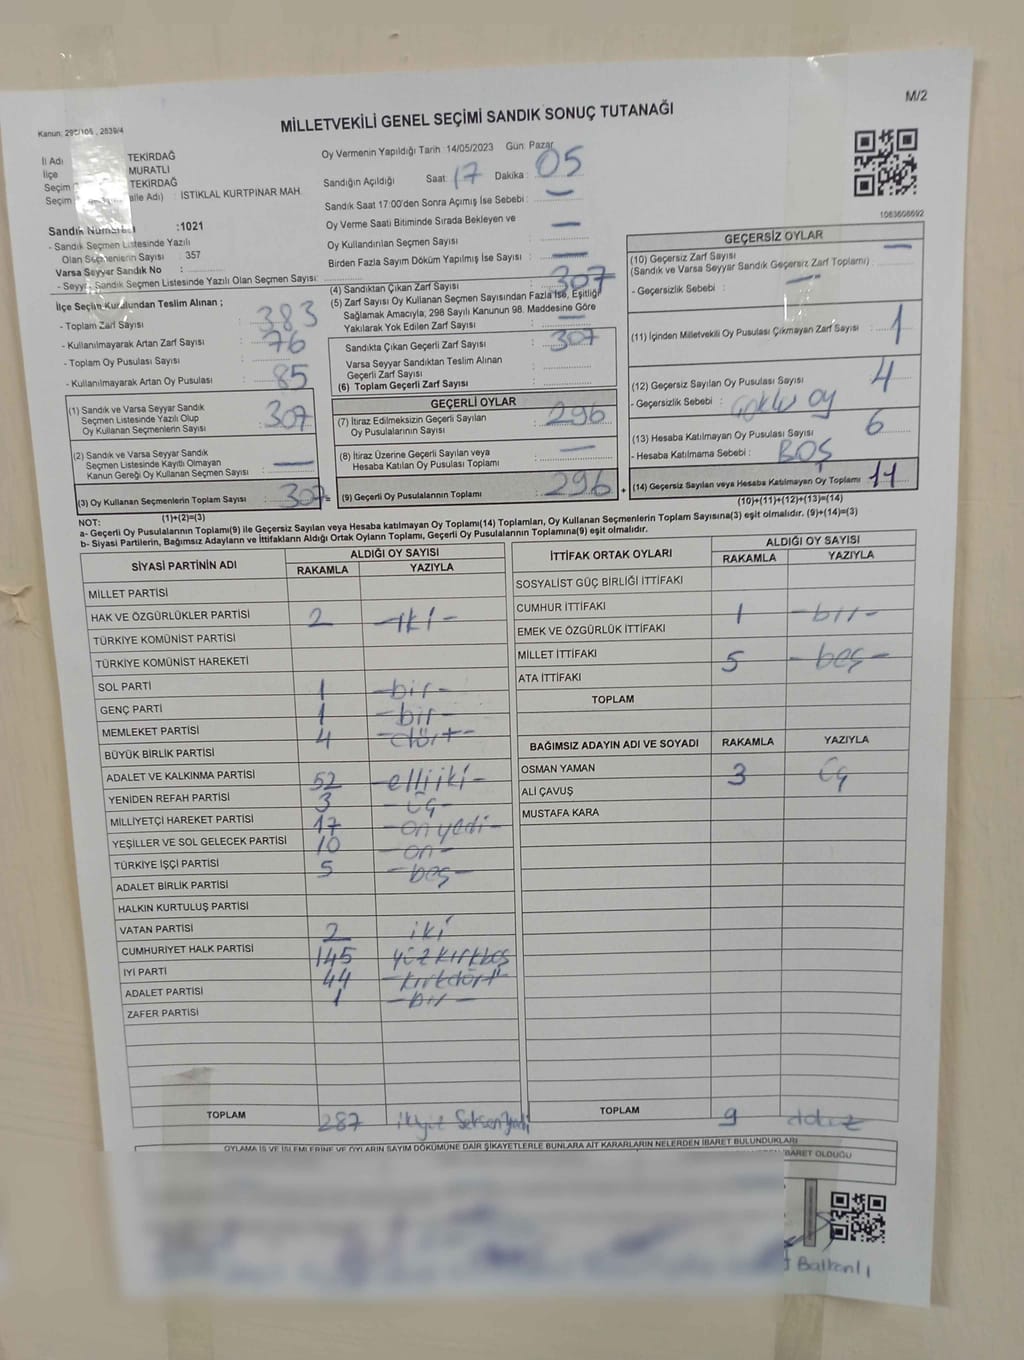 M/2
Kanun: 298/105 , 2839/4
MİLLETVEKİLİ GENEL SEÇİMİ SANDIK SONUÇ TUTANAĞI
İl Adı TEKİRDAĞ
İlçe MURATLI
Seçim TEKİRDAĞ
Seçim alle Adı) : İSTİKLAL KURTPINAR MAH.
Sandık Numarası :1021
- Sandık Seçmen Listesinde Yazılı
Olan Seçmenlerin Sayısı : 357
Varsa Seyyar Sandık No :
- Seyyar Sandık Seçmen Listesinde Yazılı Olan Seçmen Sayısı:
Oy Vermenin Yapıldığı Tarih : 14/05/2023 Gün: Pazar
Sandığın Açıldığı Saat: 17 Dakika : 05
Sandık Saat 17:00'den Sonra Açımış İse Sebebi : —
Oy Verme Saati Bitiminde Sırada Bekleyen ve
Oy Kullandırılan Seçmen Sayısı : —
Birden Fazla Sayım Döküm Yapılmış İse Sayısı : —
1083608692
İlçe Seçim Kurulundan Teslim Alınan ;
- Toplam Zarf Sayısı : 383
- Kullanılmayarak Artan Zarf Sayısı : 76
- Toplam Oy Pusulası Sayısı :
- Kullanılmayarak Artan Oy Pusulası : 85
(1) Sandık ve Varsa Seyyar Sandık
Seçmen Listesinde Yazılı Olup
Oy Kullanan Seçmenlerin Sayısı : 307
(2) Sandık ve Varsa Seyyar Sandık
Seçmen Listesinde Kayıtlı Olmayan
Kanun Gereği Oy Kullanan Seçmen Sayısı : —
(3) Oy Kullanan Seçmenlerin Toplam Sayısı : 307
(1)+(2)=(3)
(4) Sandıktan Çıkan Zarf Sayısı : 307
(5) Zarf Sayısı Oy Kullanan Seçmen Sayısından Fazla İse, Eşitliği
Sağlamak Amacıyla, 298 Sayılı Kanunun 98. Maddesine Göre
Yakılarak Yok Edilen Zarf Sayısı : —
Sandıkta Çıkan Geçerli Zarf Sayısı : 307
Varsa Seyyar Sandıktan Teslim Alınan
Geçerli Zarf Sayısı :
(6) Toplam Geçerli Zarf Sayısı :
GEÇERLİ OYLAR
(7) İtiraz Edilmeksizin Geçerli Sayılan
Oy Pusulalarının Sayısı : 296
(8) İtiraz Üzerine Geçerli Sayılan veya
Hesaba Katılan Oy Pusulası Toplamı : —
(9) Geçerli Oy Pusulalarının Toplamı : 296
GEÇERSİZ OYLAR
(10) Geçersiz Zarf Sayısı
(Sandık ve Varsa Seyyar Sandık Geçersiz Zarf Toplamı) : —
- Geçersizlik Sebebi : —
(11) İçinden Milletvekili Oy Pusulası Çıkmayan Zarf Sayısı : 1
(12) Geçersiz Sayılan Oy Pusulası Sayısı : 4
- Geçersizlik Sebebi : Çoklu oy
(13) Hesaba Katılmayan Oy Pusulası Sayısı : 6
- Hesaba Katılmama Sebebi : BOŞ
+ (14) Geçersiz Sayılan veya Hesaba Katılmayan Oy Toplamı 11
(10)+(11)+(12)+(13)=(14)
NOT:
a- Geçerli Oy Pusulalarının Toplamı(9) ile Geçersiz Sayılan veya Hesaba katılmayan Oy Toplamı(14) Toplamları, Oy Kullanan Seçmenlerin Toplam Sayısına(3) eşit olmalıdır. (9)+(14)=(3)
b- Siyasi Partilerin, Bağımsız Adayların ve İttifakların Aldığı Ortak Oyların Toplamı, Geçerli Oy Pusulalarının Toplamına(9) eşit olmalıdır.
SİYASİ PARTİNİN ADI ALDIĞI OY SAYISI
RAKAMLA YAZIYLA
MİLLET PARTİSİ
HAK VE ÖZGÜRLÜKLER PARTİSİ 2 -iki-
TÜRKİYE KOMÜNİST PARTİSİ
TÜRKİYE KOMÜNİST HAREKETİ
SOL PARTİ 1 -bir-
GENÇ PARTİ 1 -bir-
MEMLEKET PARTİSİ 4 -dört-
BÜYÜK BİRLİK PARTİSİ
ADALET VE KALKINMA PARTİSİ 52 -elliiki-
YENİDEN REFAH PARTİSİ 3 -üç-
MİLLİYETÇİ HAREKET PARTİSİ 17 -onyedi-
YEŞİLLER VE SOL GELECEK PARTİSİ 10 -on-
TÜRKİYE İŞÇİ PARTİSİ 5 -beş-
ADALET BİRLİK PARTİSİ
HALKIN KURTULUŞ PARTİSİ
VATAN PARTİSİ 2 iki
CUMHURİYET HALK PARTİSİ 145 yüzkırkbeş
İYİ PARTİ 44 -kırkdört-
ADALET PARTİSİ 1 -bir-
ZAFER PARTİSİ
TOPLAM 287 ikiyüz Seksenyedi
İTTİFAK ORTAK OYLARI ALDIĞI OY SAYISI
RAKAMLA YAZIYLA
SOSYALİST GÜÇ BİRLİĞİ İTTİFAKI
CUMHUR İTTİFAKI 1 -bir-
EMEK VE ÖZGÜRLÜK İTTİFAKI
MİLLET İTTİFAKI 5 -beş-
ATA İTTİFAKI
TOPLAM
BAĞIMSIZ ADAYIN ADI VE SOYADI RAKAMLA YAZIYLA
OSMAN YAMAN 3 üç
ALİ ÇAVUŞ
MUSTAFA KARA
TOPLAM 9 dokuz
OYLAMA İŞ VE İŞLEMLERİNE VE OYLARIN SAYIM DÖKÜMÜNE DAİR ŞİKAYETLERLE BUNLARA AİT KARARLARIN NELERDEN İBARET BULUNDUKLARI
İBARET OLDUĞU
Balkanlı